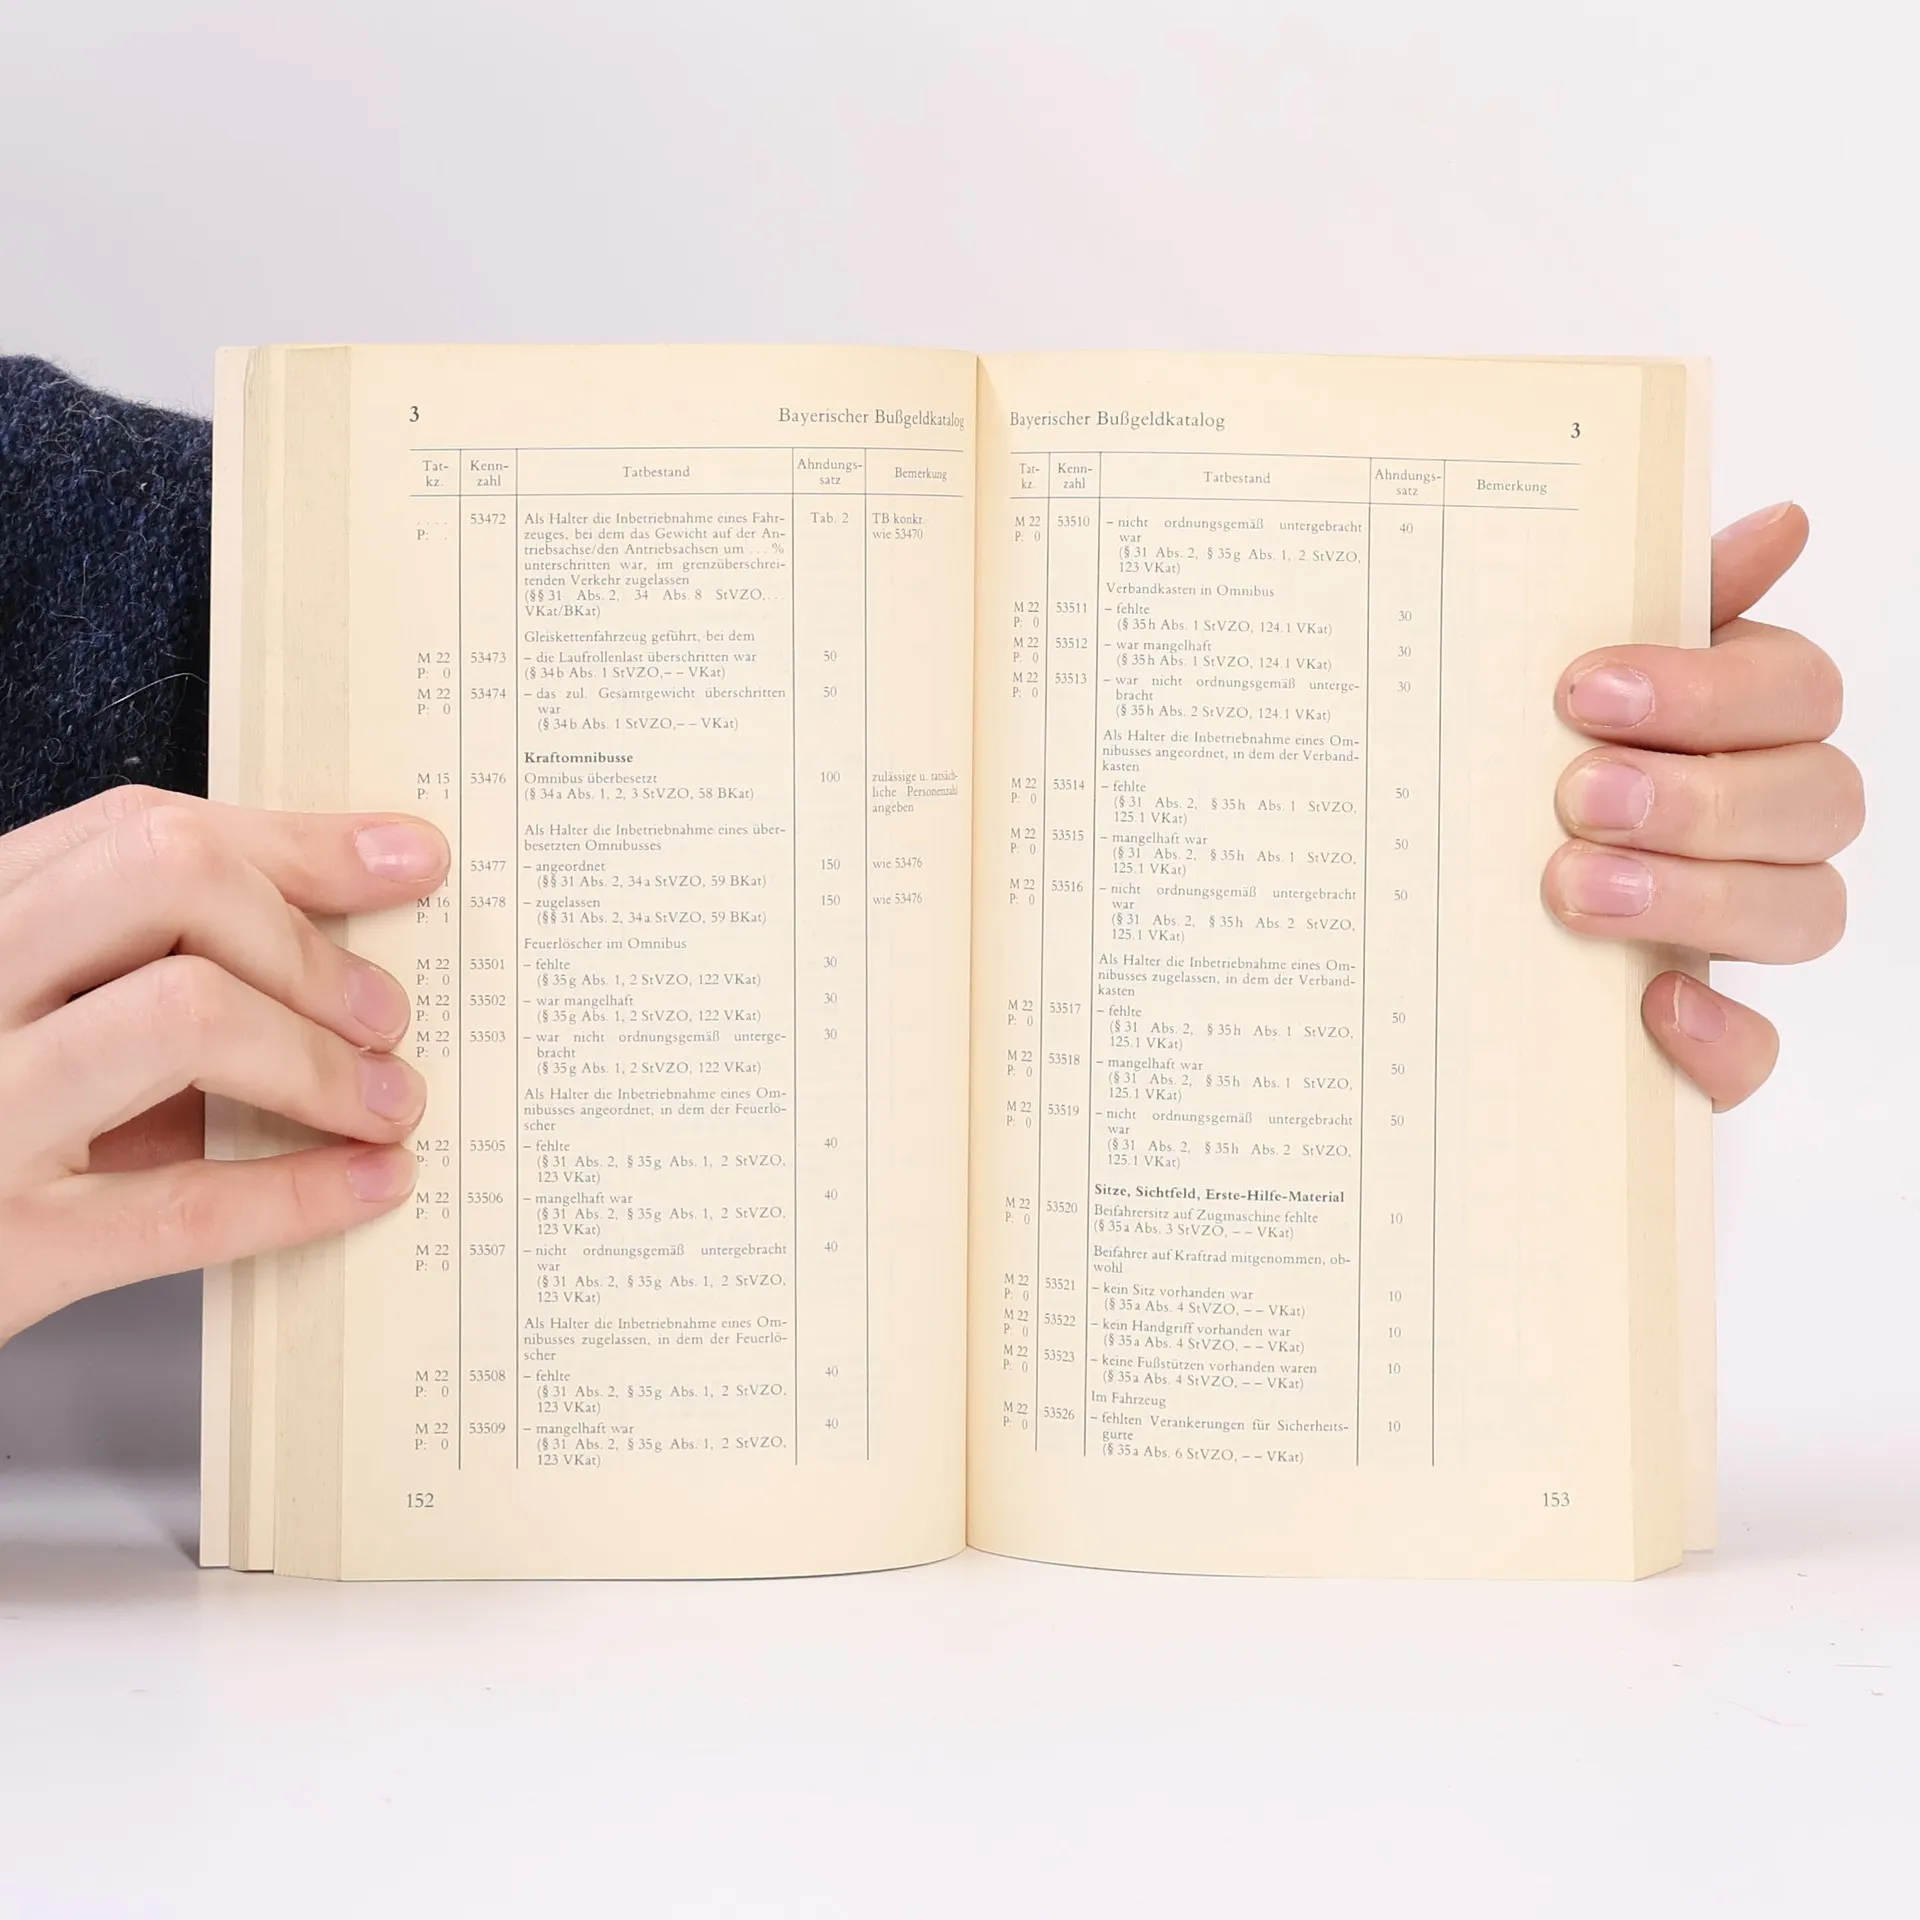 3 Bayerischer Bußgeldkatalog
Tat-kz. Kenn-zahl Tatbestand Ahndungs-satz Bemerkung
.... 53472 Als Halter die Inbetriebnahme eines Fahr- Tab. 2 TB konkr.
P: . zeuges, bei dem das Gewicht auf der An- wie 53470
triebsachse/den Antriebsachsen um ... %
unterschritten war, im grenzüberschrei-
tenden Verkehr zugelassen
(§§ 31 Abs. 2, 34 Abs. 8 StVZO,...
VKat/BKat)
Gleiskettenfahrzeug geführt, bei dem
M 22 53473 – die Laufrollenlast überschritten war 50
P: 0 (§ 34b Abs. 1 StVZO,– – VKat)
M 22 53474 – das zul. Gesamtgewicht überschritten 50
P: 0 war
(§ 34b Abs. 1 StVZO,– – VKat)
Kraftomnibusse
M 15 53476 Omnibus überbesetzt 100 zulässige u. tatsäch-
P: 1 (§ 34a Abs. 1, 2, 3 StVZO, 58 BKat) liche Personenzahl
angeben
Als Halter die Inbetriebnahme eines über-
besetzten Omnibusses
53477 – angeordnet 150 wie 53476
1 (§§ 31 Abs. 2, 34a StVZO, 59 BKat)
M 16 53478 – zugelassen 150 wie 53476
P: 1 (§§ 31 Abs. 2, 34a StVZO, 59 BKat)
Feuerlöscher im Omnibus
M 22 53501 – fehlte 30
P: 0 (§ 35g Abs. 1, 2 StVZO, 122 VKat)
M 22 53502 – war mangelhaft 30
P: 0 (§ 35g Abs. 1, 2 StVZO, 122 VKat)
M 22 53503 – war nicht ordnungsgemäß unterge- 30
P: 0 bracht
(§ 35g Abs. 1, 2 StVZO, 122 VKat)
Als Halter die Inbetriebnahme eines Om-
nibusses angeordnet, in dem der Feuerlö-
scher
M 22 53505 – fehlte 40
P: 0 (§ 31 Abs. 2, § 35g Abs. 1, 2 StVZO,
123 VKat)
M 22 53506 – mangelhaft war 40
P: 0 (§ 31 Abs. 2, § 35g Abs. 1, 2 StVZO,
123 VKat)
M 22 53507 – nicht ordnungsgemäß untergebracht 40
P: 0 war
(§ 31 Abs. 2, § 35g Abs. 1, 2 StVZO,
123 VKat)
Als Halter die Inbetriebnahme eines Om-
nibusses zugelassen, in dem der Feuerlö-
scher
M 22 53508 – fehlte 40
P: 0 (§ 31 Abs. 2, § 35g Abs. 1, 2 StVZO.
123 VKat)
M 22 53509 – mangelhaft war 40
P: 0 (§ 31 Abs. 2, § 35g Abs. 1, 2 StVZO.
123 VKat)
152
Bayerischer Bußgeldkatalog 3
Tat-kz. Kenn-zahl Tatbestand Ahndungs-satz Bemerkung
M 22 53510 – nicht ordnungsgemäß untergebracht 40
P: 0 war
(§ 31 Abs. 2, § 35g Abs. 1, 2 StVZO,
123 VKat)
Verbandkasten in Omnibus
M 22 53511 – fehlte 30
P: 0 (§ 35h Abs. 1 StVZO, 124.1 VKat)
M 22 53512 – war mangelhaft 30
P: 0 (§ 35h Abs. 1 StVZO, 124.1 VKat)
M 22 53513 – war nicht ordnungsgemäß unterge- 30
P: 0 bracht
(§ 35h Abs. 2 StVZO, 124.1 VKat)
Als Halter die Inbetriebnahme eines Om-
nibusses angeordnet, in dem der Verband-
kasten
M 22 53514 – fehlte 50
P: 0 (§ 31 Abs. 2, § 35h Abs. 1 StVZO,
125.1 VKat)
M 22 53515 – mangelhaft war 50
P: 0 (§ 31 Abs. 2, § 35h Abs. 1 StVZO,
125.1 VKat)
M 22 53516 – nicht ordnungsgemäß untergebracht 50
P: 0 war
(§ 31 Abs. 2, § 35h Abs. 2 StVZO,
125.1 VKat)
Als Halter die Inbetriebnahme eines Om-
nibusses zugelassen, in dem der Verband-
kasten
M 22 53517 – fehlte 50
P: 0 (§ 31 Abs. 2, § 35h Abs. 1 StVZO,
125.1 VKat)
M 22 53518 – mangelhaft war 50
P: 0 (§ 31 Abs. 2, § 35h Abs. 1 StVZO,
125.1 VKat)
M 22 53519 – nicht ordnungsgemäß untergebracht 50
P: 0 war
(§ 31 Abs. 2, § 35h Abs. 2 StVZO,
125.1 VKat)
Sitze, Sichtfeld, Erste-Hilfe-Material
M 22 53520 Beifahrersitz auf Zugmaschine fehlte 10
P: 0 (§ 35a Abs. 3 StVZO, – – VKat)
Beifahrer auf Kraftrad mitgenommen, ob-
wohl
M 22 53521 – kein Sitz vorhanden war 10
P: 0 (§ 35a Abs. 4 StVZO, – – VKat)
M 22 53522 – kein Handgriff vorhanden war 10
P: 0 (§ 35a Abs. 4 StVZO, – – VKat)
M 22 53523 – keine Fußstützen vorhanden waren 10
P: 0 (§ 35a Abs. 4 StVZO, – – VKat)
Im Fahrzeug
M 22 53526 – fehlten Verankerungen für Sicherheits- 10
P: 0 gurte
(§ 35a Abs. 6 StVZO, – – VKat)
153